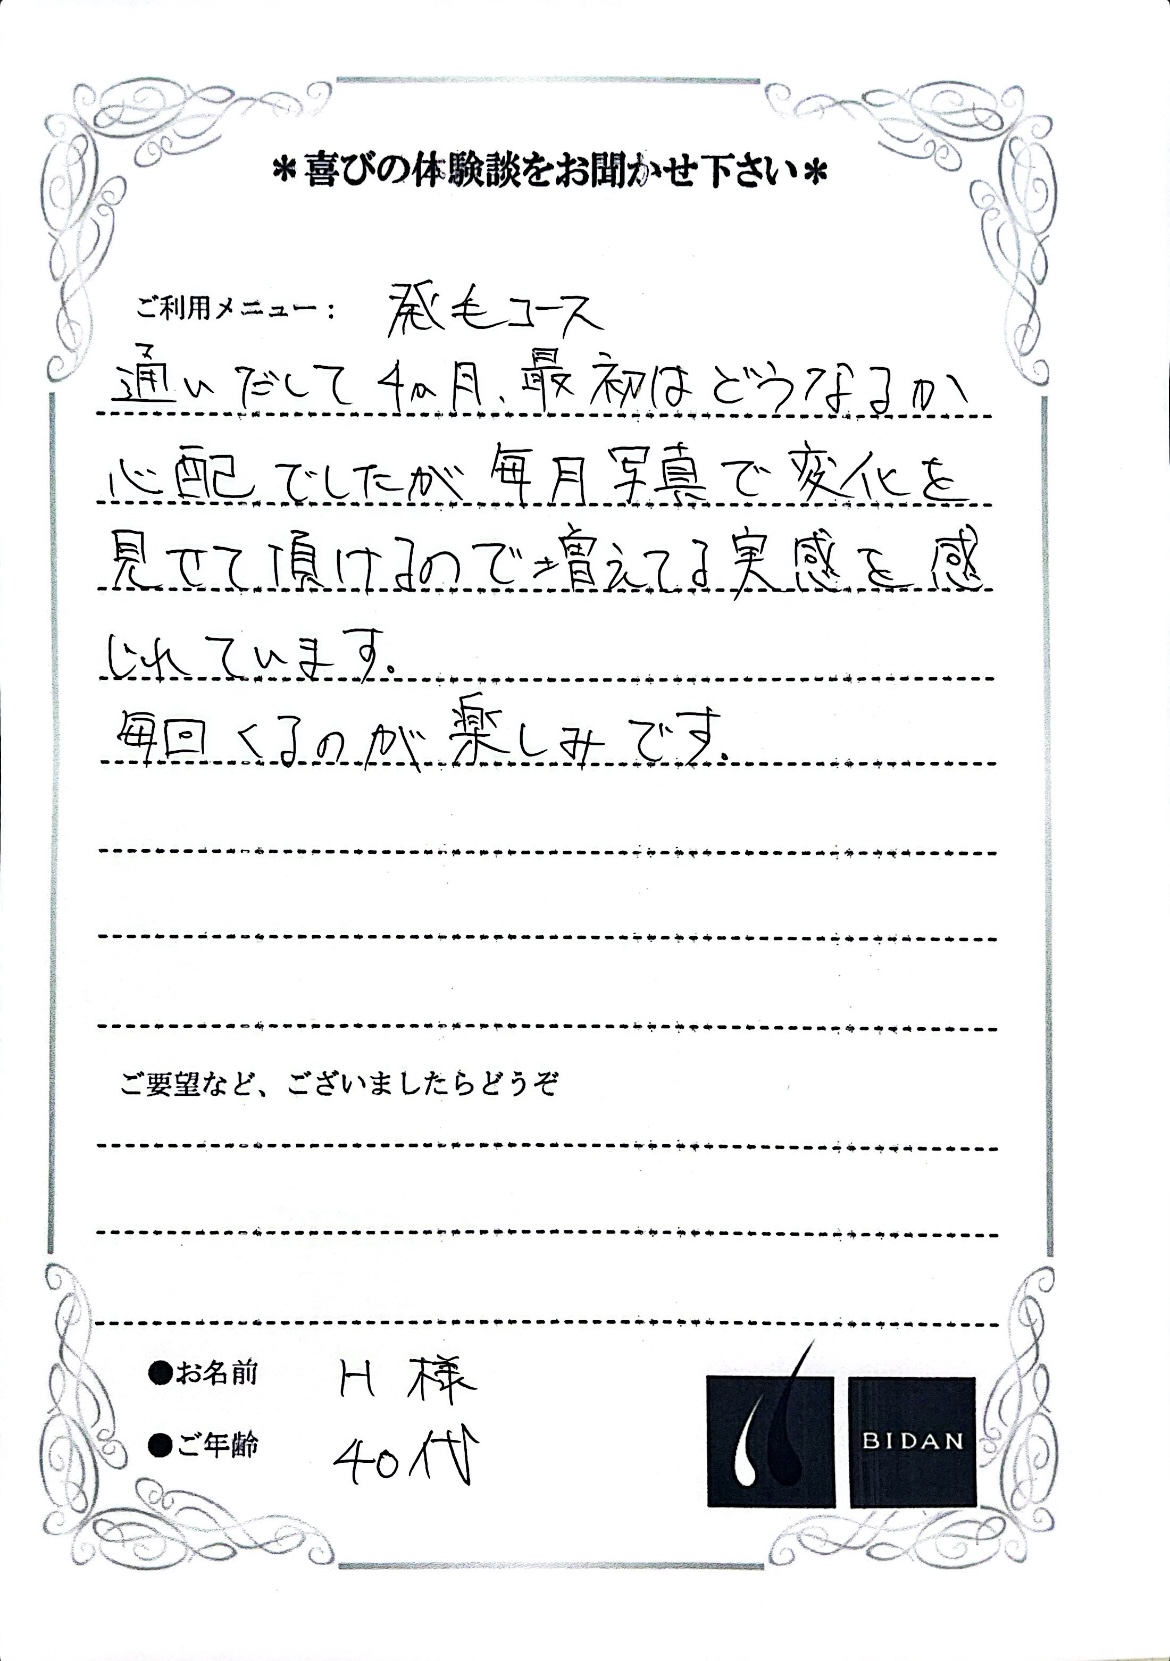 ＊喜びの体験談をお聞かせ下さい＊
ご利用メニュー： 発毛コース
通いだして4ヵ月、最初はどうなるか
心配でしたが毎月写真で変化を
見せて頂けるので増えてる実感を感
じれています。
毎回くるのが楽しみです。
ご要望など、ございましたらどうぞ
●お名前 H様
●ご年齢 40代
BIDAN